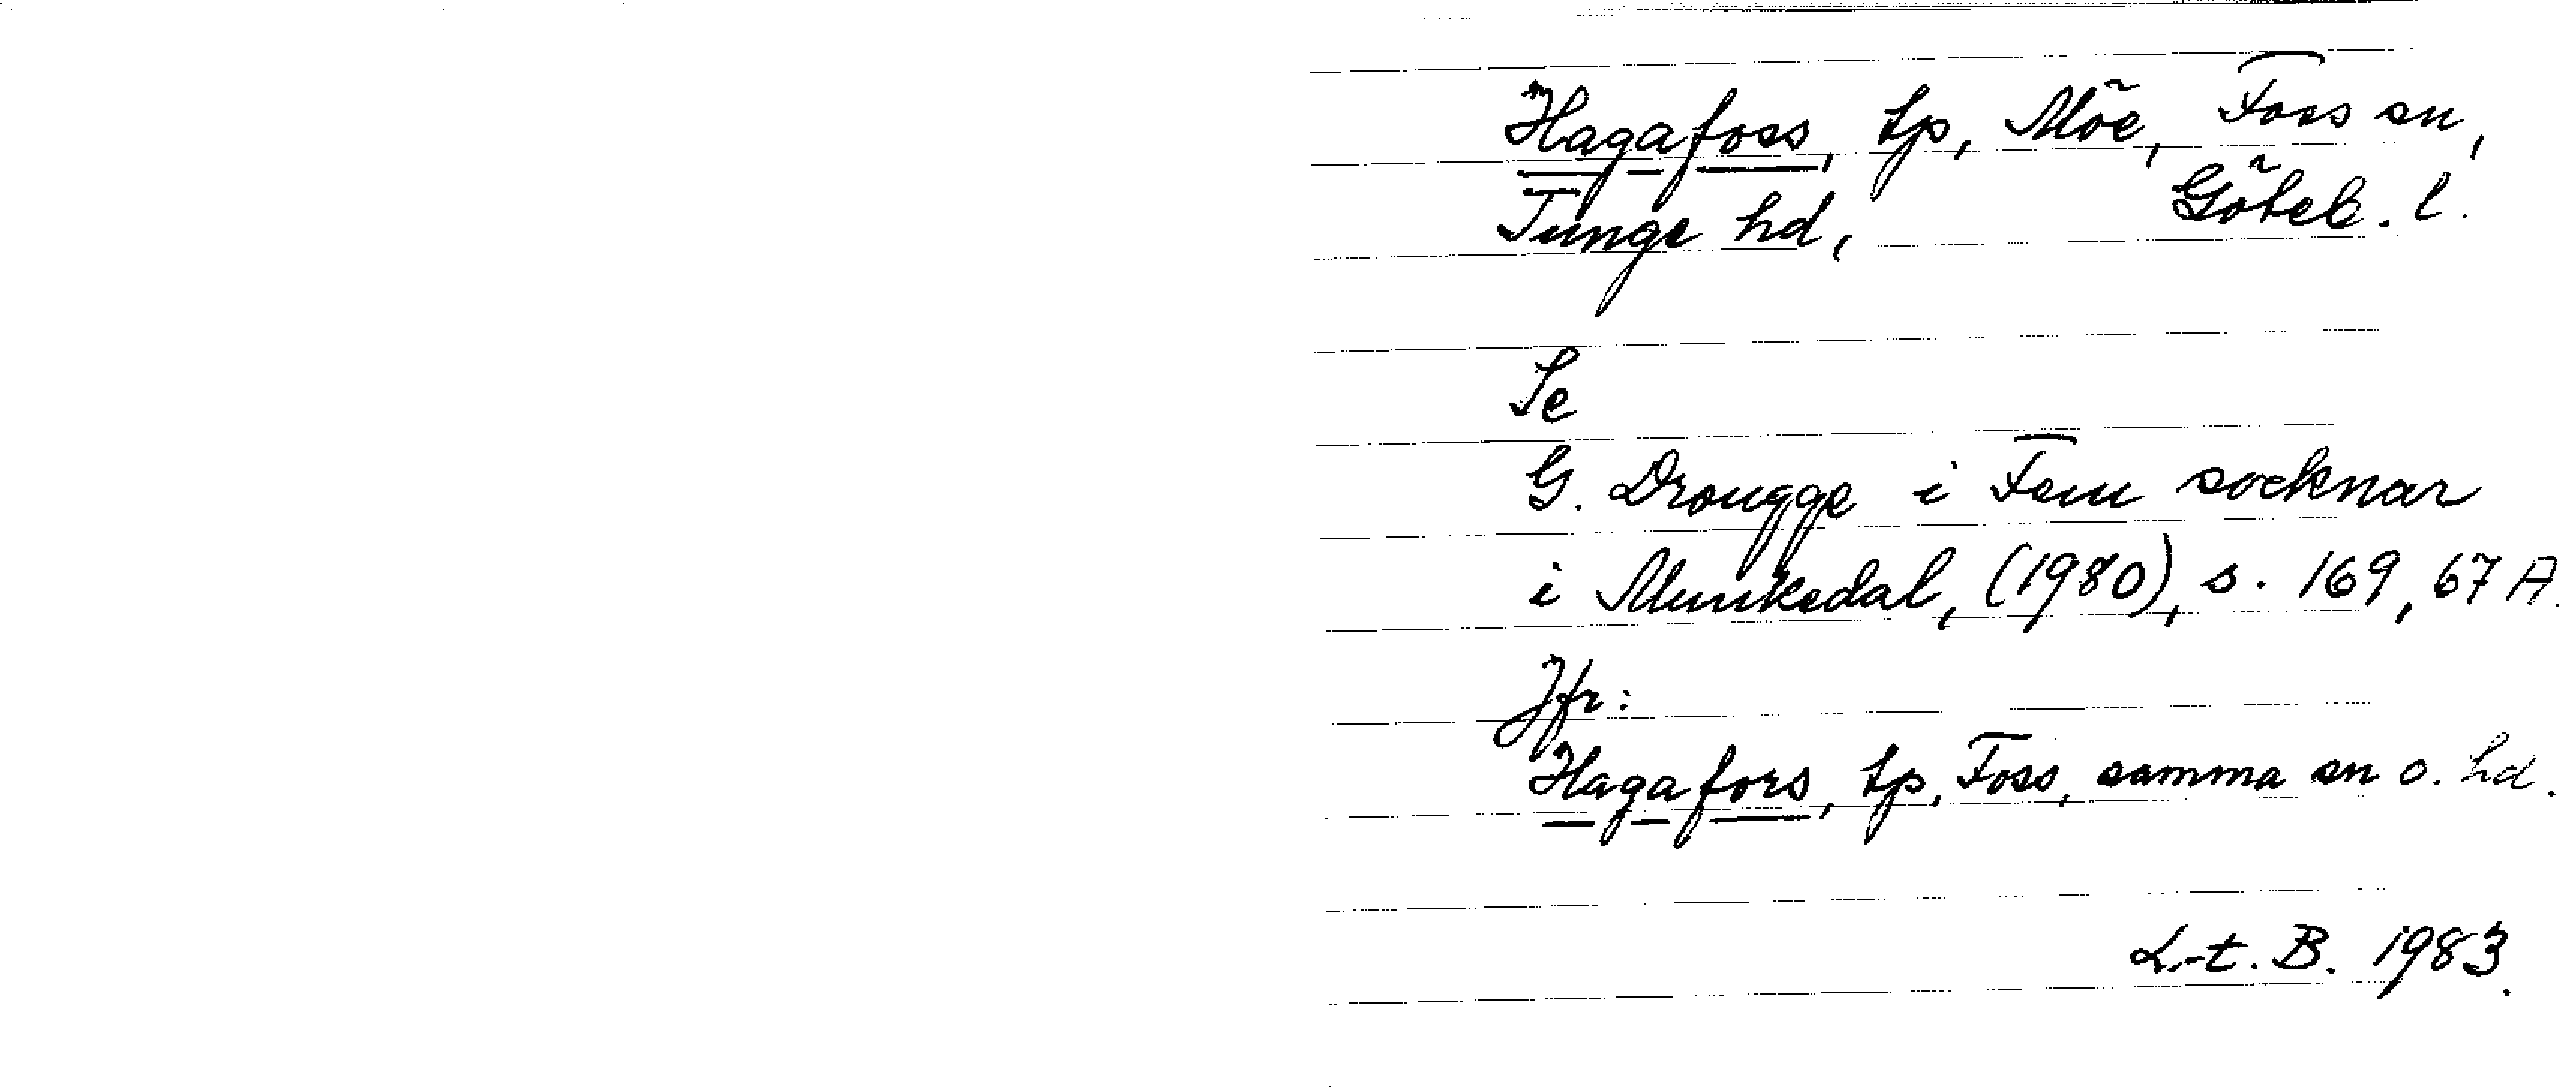 Hagafoss, tp, Möe, Foss sn,
Tunge hd, Göteb. l.
Se
G. Drougge i Fem socknar
i Munkedal, (1980), s. 169, 67 A.
Jfr:
Hagafors, tp, Foss, samma sn o. hd.
L-t. B. 1983.